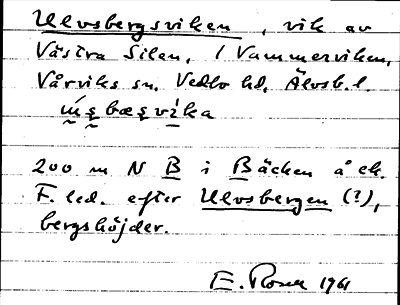 Ulvsbergsviken, vik av
Västra Silen, / Vammerviken,
Vårviks sn, Vedbo hd, Älvsb. l.
bæ vika
200 m N B i Bäcken å ek.
F. led. efter Ulvsbergen (?),
bergshöjder.
E. Rosell 1961